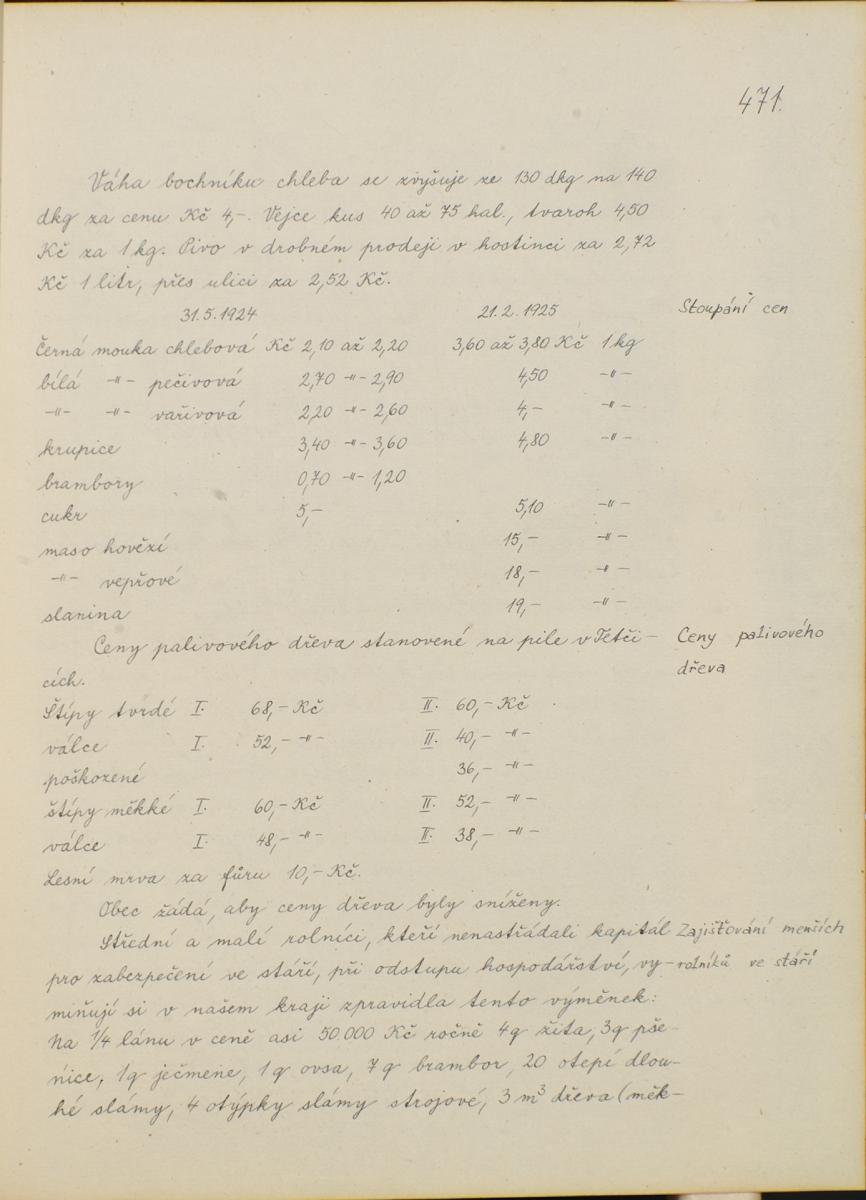 471.
Váha bochníku chleba se zvyšuje ze 130 dkg na 140
dkg za cenu Kč 4,-. Vejce kus 40 až 75 hal., tvaroh 4,50
Kč za 1 kg. Pivo v drobném prodeji v hostinci za 2,72
Kč 1 litr, přes ulici za 2,52 Kč.
31.5.1924 21.2.1925 Stoupání cen
Černá mouka chlebová Kč 2,10 až 2,20 3,60 až 3,80 Kč 1 kg
bílá -"- pečivová 2,70 -"- 2,90 4,50 -"-
-"- -"- vařivová 2,20 -"- 2,60 4,- -"-
krupice 3,40 -"- 3,60 4,80 -"-
brambory 0,70 -"- 1,20
cukr 5,- 5,10 -"-
maso hovězí 15,- -"-
-"- vepřové 18,- -"-
slanina 19,- -"-
Ceny palivového dřeva stanovené na pile v Tetči- Ceny palivového
cích. dřeva
Štípy tvrdé I. 68,- Kč II. 60,- Kč
válce I. 52,- -"- II. 40,- -"-
poškozené 36,- -"-
štípy měkké I. 60,- Kč II. 52,- -"-
válce I. 48,- -"- II. 38,- -"-
Lesní mrva za fůru 10,- Kč.
Obec žádá, aby ceny dřeva byly sníženy.
Střední a malí rolníci, kteří nenastřádali kapitál Zajišťování menších
pro zabezpečení ve stáří, při odstupu hospodářství, vy- rolníků ve stáří
miňují si v našem kraji zpravidla tento výměnek:
Na 1/4 lánu v ceně asi 50.000 Kč ročně 4q žita, 3q pše-
nice, 1q ječmene, 1q ovsa, 7q brambor, 20 otepí dlou-
hé slámy, 4 otýpky slámy strojové, 3 m³ dřeva (měk-